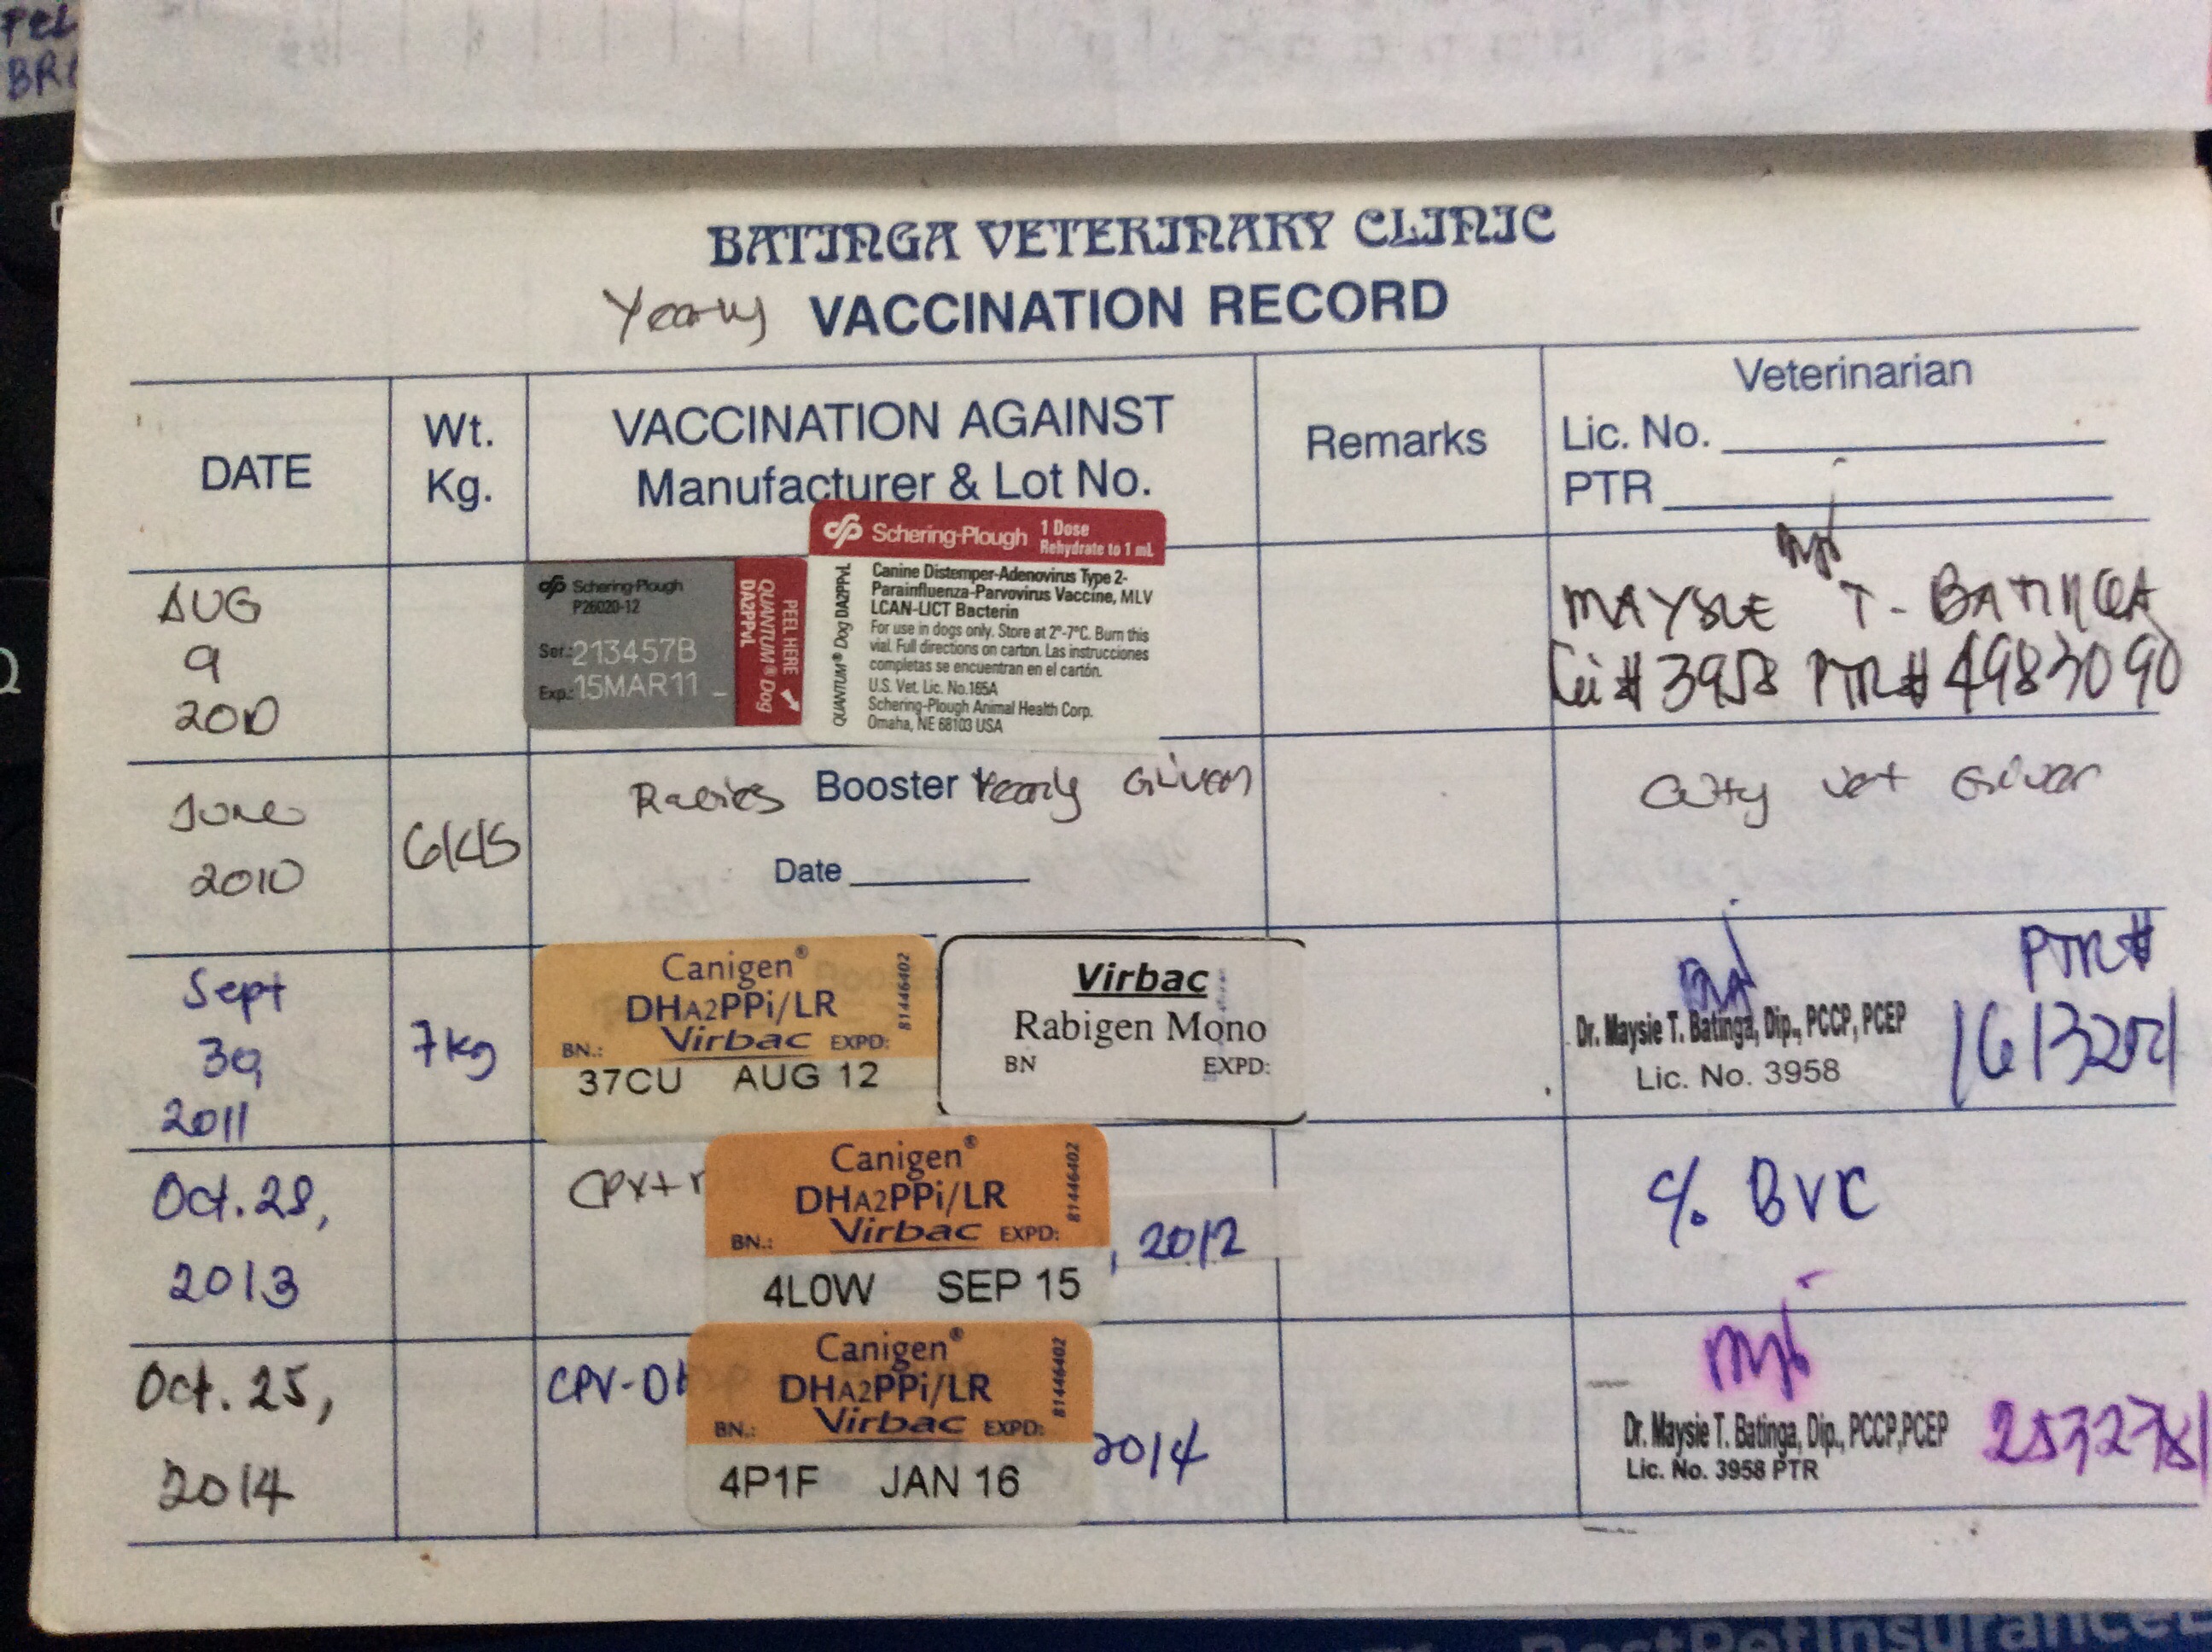 FEL
BATINGA VETERINARY CLINIC
Yearly VACCINATION RECORD
DATE
Wt.
Kg.
VACCINATION AGAINST
Manufacturer & Lot No.
Remarks
Veterinarian
Lic. No.
PTR
AUG
9
2010
Schering-Plough
P26020-12
Ser.: 213457B
Exp.: 15MAR11
PEEL HERE
QUANTUM® Dog
DA2PPvL
Schering-Plough 1 Dose
Rehydrate to 1 mL
QUANTUM® Dog DA2PPvL
Canine Distemper-Adenovirus Type 2-
Parainfluenza-Parvovirus Vaccine, MLV
LCAN-LICT Bacterin
For use in dogs only. Store at 2°-7°C. Burn this
vial. Full directions on carton. Las instrucciones
completas se encuentran en el cartón.
U.S. Vet. Lic. No.165A
Schering-Plough Animal Health Corp.
Omaha, NE 68103 USA
MAYSIE T. BATINGA
Lic # 3958 PTR# 4983090
June
2010
Rabies Booster Yearly Given
Date
City Vet Given
Sept
30,
2011
7kg
Canigen®
DHA2PPi/LR
Virbac
BN.: EXPD:
37CU AUG 12
81446402
Virbac
Rabigen Mono
BN EXPD:
PTR#
Dr. Maysie T. Batinga, Dip., PCCP, PCEP
Lic. No. 3958
Oct. 28,
2013
Canigen®
DHA2PPi/LR
Virbac
BN.: EXPD:
4L0W SEP 15
81446402
, 2012
c/o BVC
Oct. 25,
2014
CPV-DH
Canigen®
DHA2PPi/LR
Virbac
BN.: EXPD:
4P1F JAN 16
81446402
2014
Dr. Maysie T. Batinga, Dip., PCCP,PCEP
Lic. No. 3958 PTR 2532781
BestPetInsurance